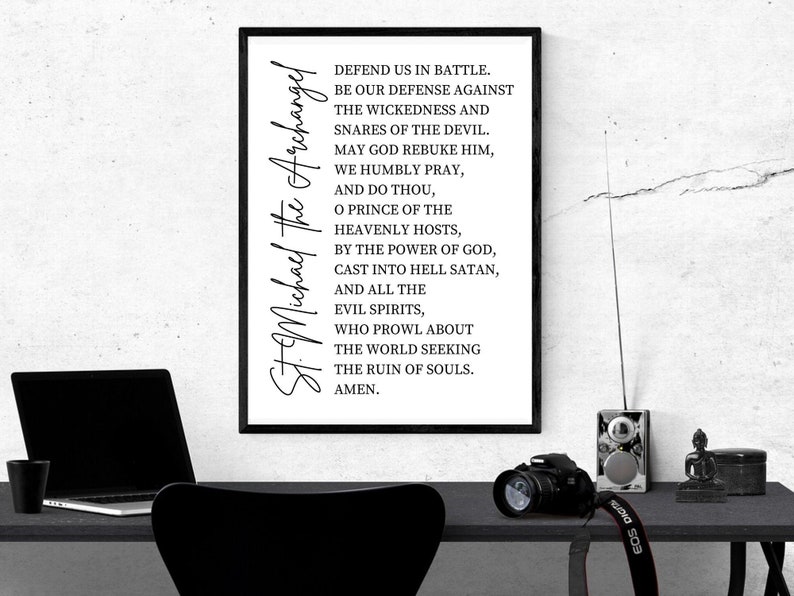 St. Michael the Archangel
DEFEND US IN BATTLE.
BE OUR DEFENSE AGAINST
THE WICKEDNESS AND
SNARES OF THE DEVIL.
MAY GOD REBUKE HIM,
WE HUMBLY PRAY,
AND DO THOU,
O PRINCE OF THE
HEAVENLY HOSTS,
BY THE POWER OF GOD,
CAST INTO HELL SATAN,
AND ALL THE
EVIL SPIRITS,
WHO PROWL ABOUT
THE WORLD SEEKING
THE RUIN OF SOULS.
AMEN.
EOS DIGITAL